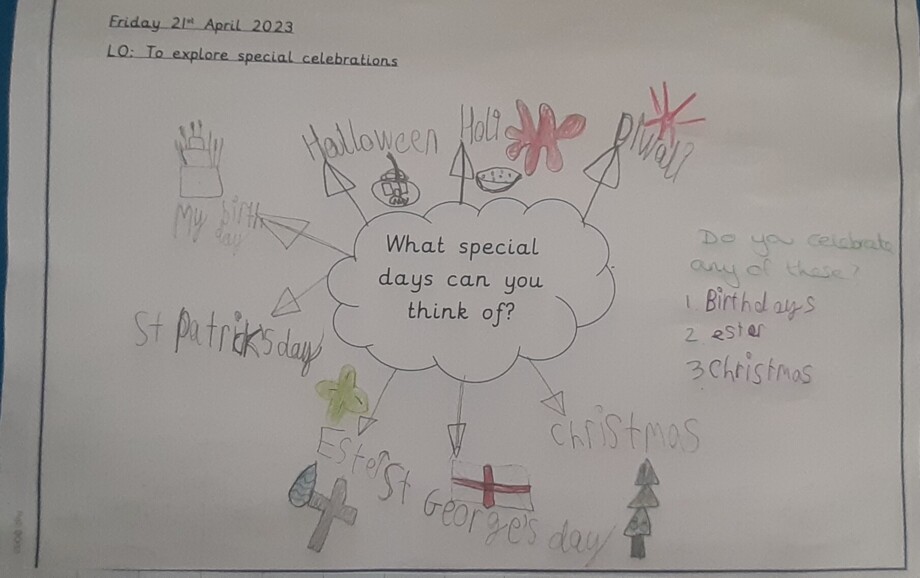 Friday 21st April 2023
LO: To explore special celebrations
Halloween
Holi
Diwali
My birth
day
What special
days can you
think of?
Do you celebrate
any of these?
1 Birthdays
2 ester
3 Christmas
St Patrick's day
Christmas
Ester
St
George's day